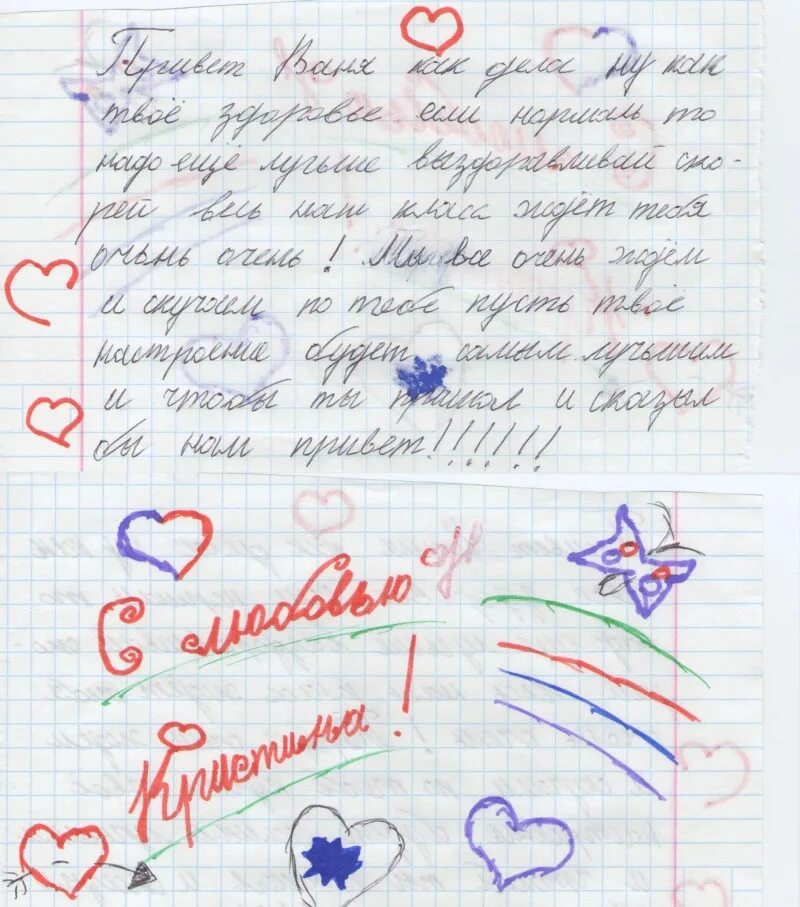 Привет Ваня как дела ну как
твоё здоровье если нормаль то
надо ещё лучьше выздоравливай ско-
рей весь наш класс ждёт тебя
очьнь очень! Мы все очень ждём
и скучаем по тебе пусть твоё
настроение будет самым лучьшим
и чтобы ты пришол и сказал
бы нам привет!!!!!!!
С любовью
Кристина!